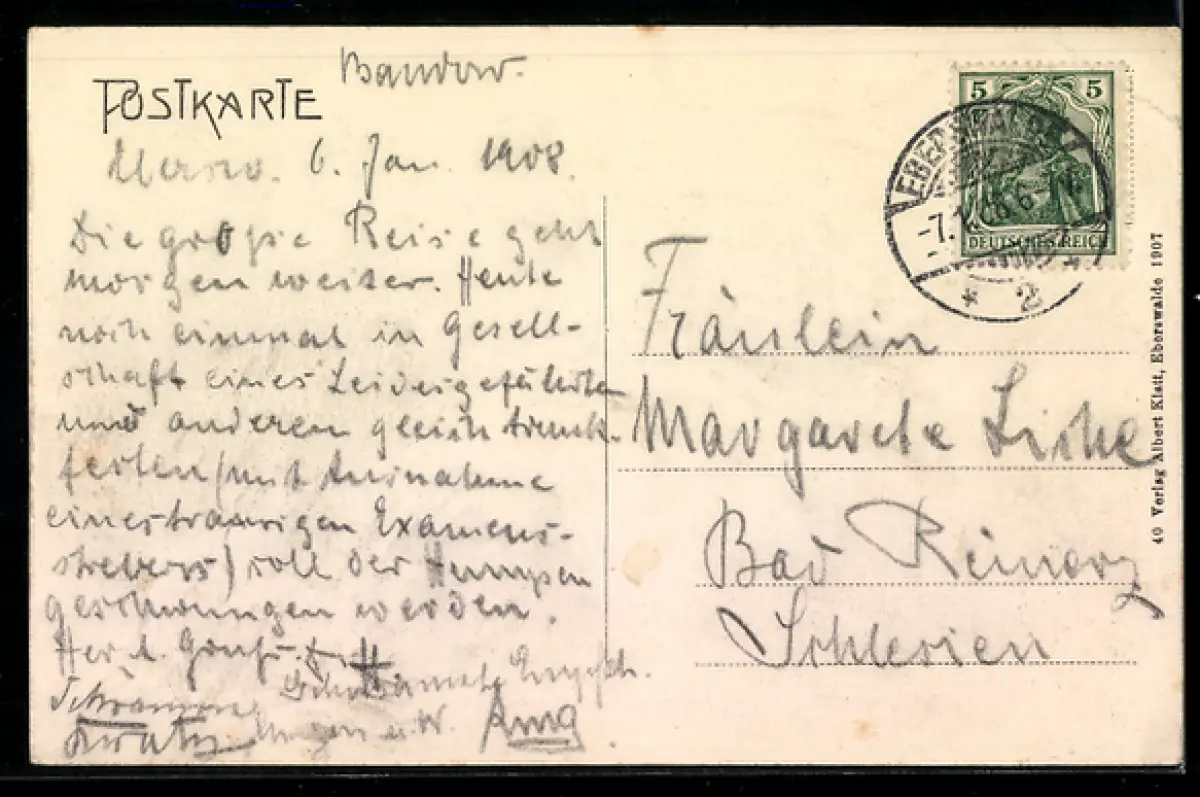 Bandow.
POSTKARTE
6. Jan. 1908.
Die große Reise geht
morgen weiter. Heute
noch einmal in Gesell-
schaft eines Leidensgefährten
und anderen gleich trunk-
festen (mit Ausnahme
eines traurigen Examens-
strebers) soll der Humpen
geschwungen werden.
Herzl. Gruß
Schramm
5 5
DEUTSCHES REICH
EBERSWALDE
-7.1.08.6-
* 2 *
Fräulein
Margarete
Bad Reinerz
Schlesien
40 Verlag Albert Klatt, Eberswalde 1907